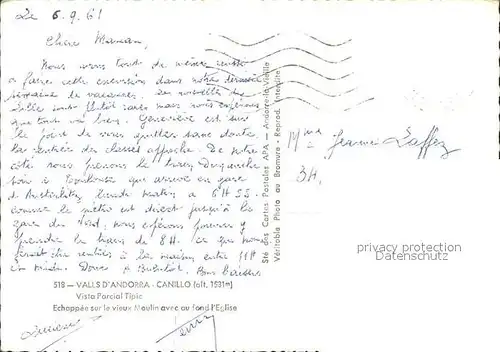 Le 6.9.61
Chère Maman,
Nous avons tout de même réussi
à faire cette excursion dans notre dernière
semaine de vacances. Les nouvelles de
sont plutôt rares mais nous espérons
que tout va bien. Geneviève est sur
le point de vous quitter sans doute,
la rentrée des classes approche. De notre
côté nous prenons le train Dimanche
soir à Toulouse qui arrive en gare
d'Austerlitz lundi matin à 6H55.
comme le métro est direct jusqu'à la
gare du Nord, nous espérons pouvoir
prendre le train de 8H. ce qui nous
ferait être rentrés à la maison entre 11H
et midi. Donc à Bientôt. Bons baisers
518 — VALLS D'ANDORRA - CANILLO (alt. 1531m)
Vista Parcial Tipic
Echappée sur le vieux Moulin avec au fond l'Eglise
Sté des Cartes Postales APA — Andorre-la-Vieille
Véritable Photo au Bromure - Reprod. Interdite
Mme Jeanne Laffez
34,
privacy protection
Datenschutz